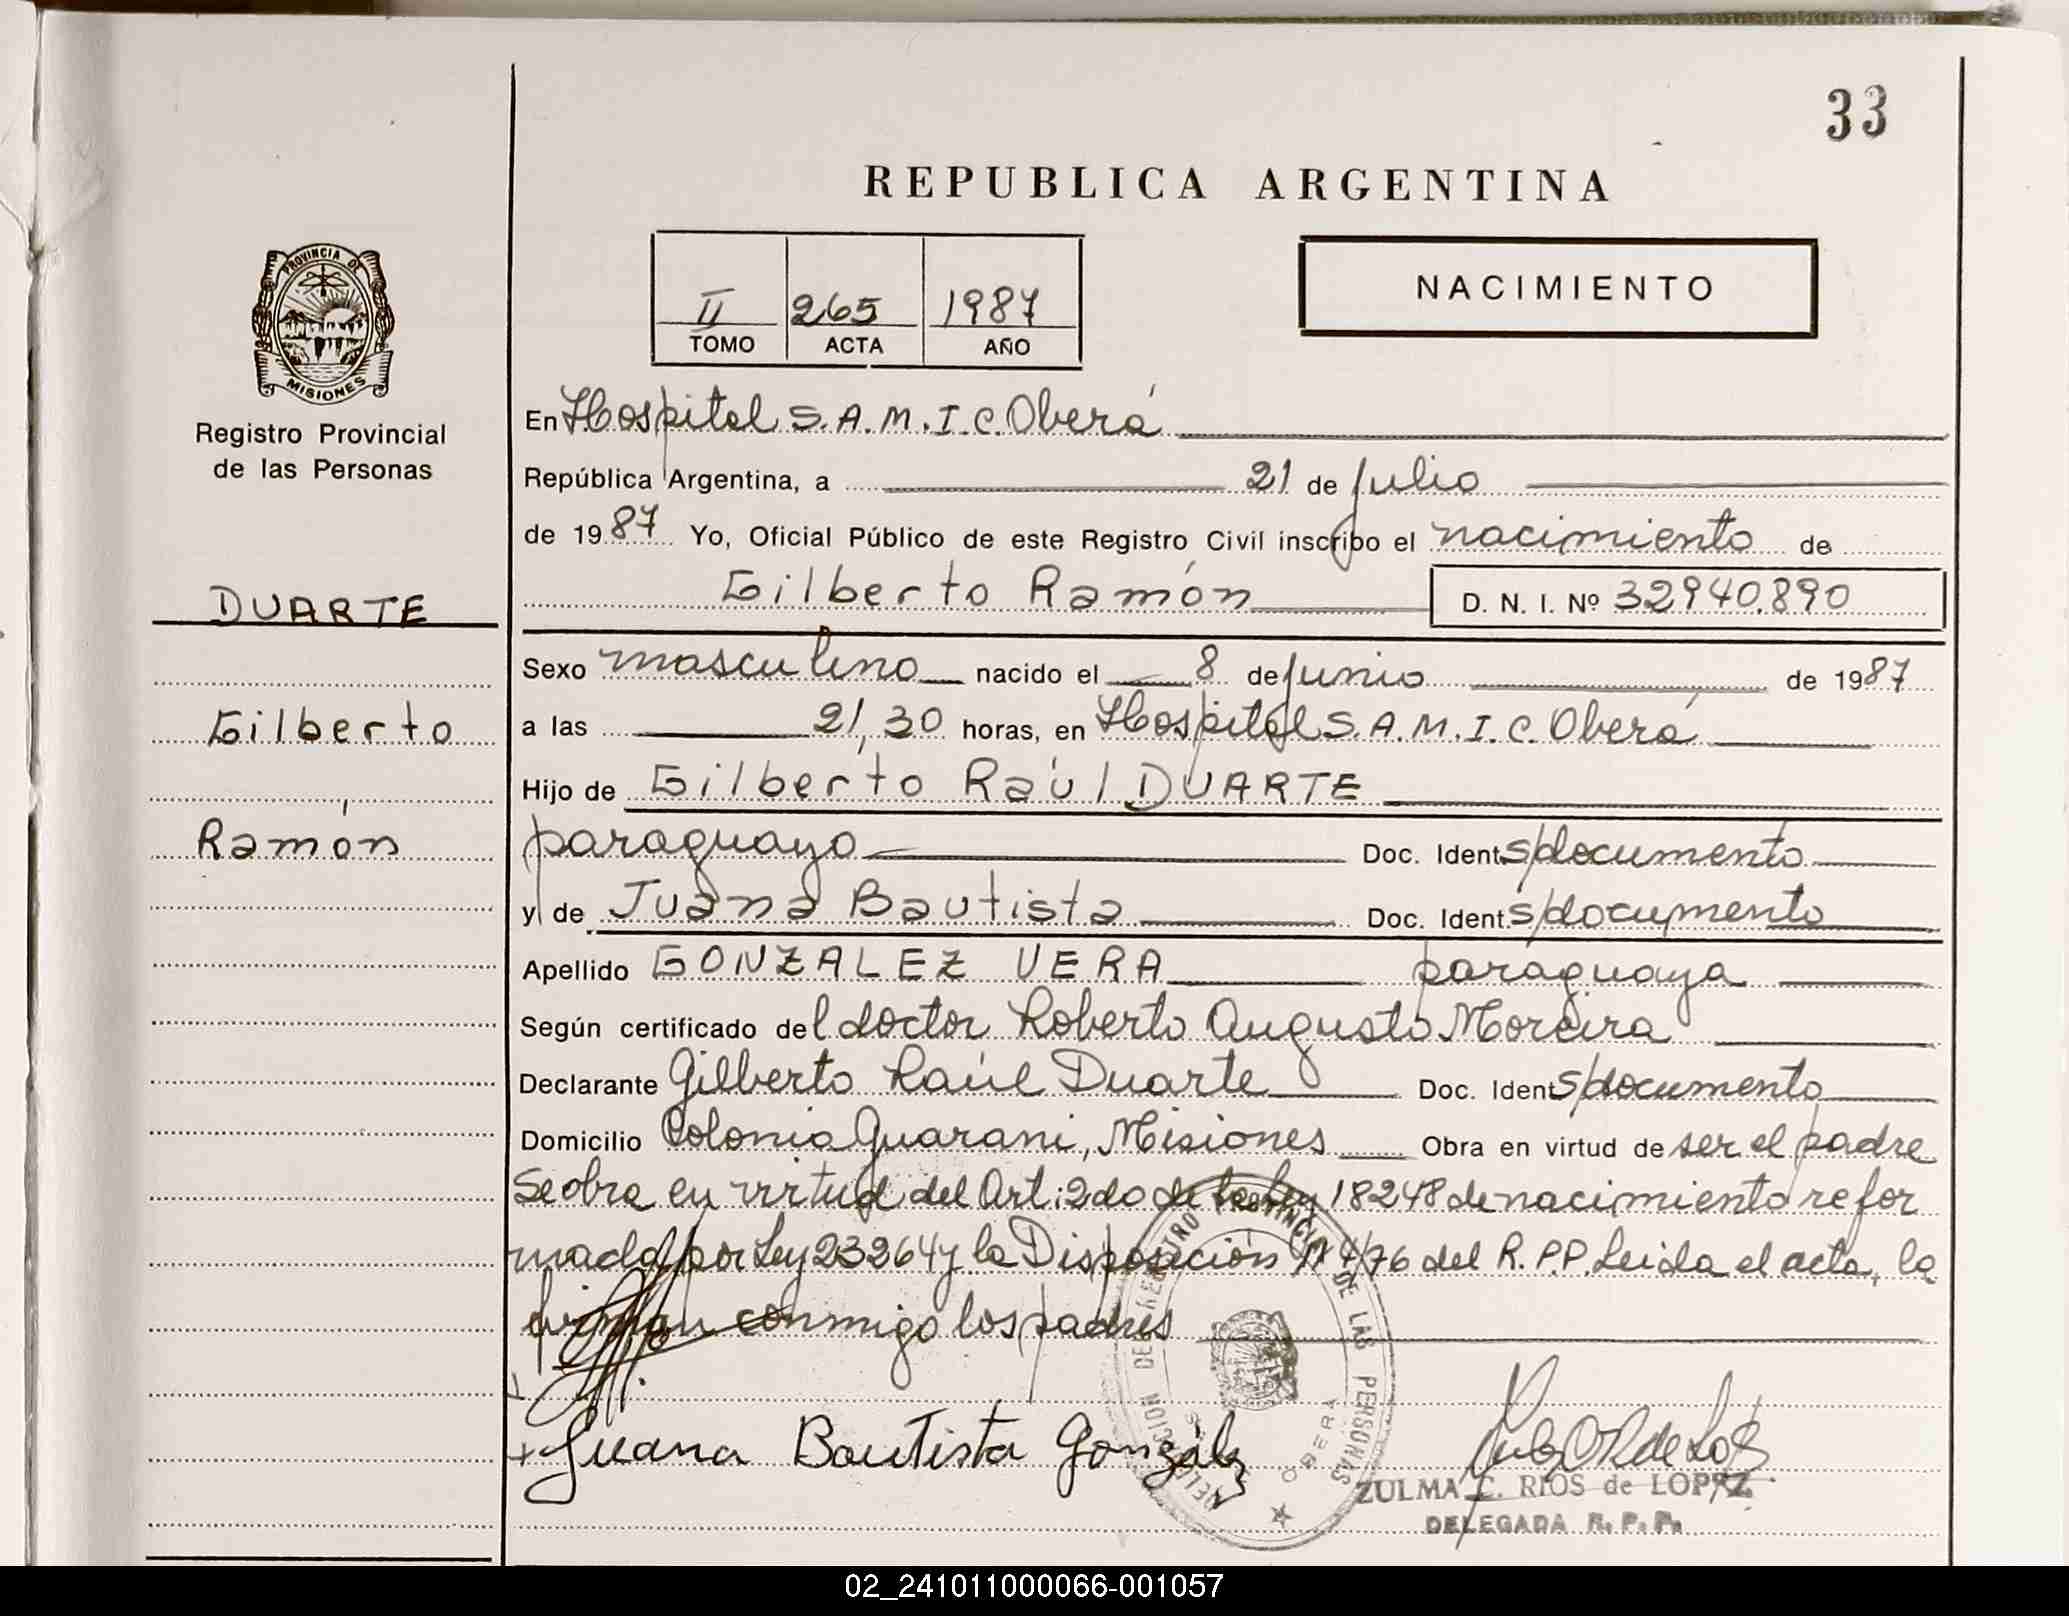 33
REPUBLICA ARGENTINA
II 265 1987
TOMO ACTA AÑO
NACIMIENTO
PROVINCIA DE
MISIONES
Registro Provincial
de las Personas
DUARTE
Gilberto
Ramón
En Hospital S.A.M.I.C. Oberá
República Argentina, a 21 de julio
de 1987 Yo, Oficial Público de este Registro Civil inscribo el nacimiento de
Gilberto Ramón D. N. I. Nº 32940.890
Sexo masculino nacido el 8 de junio de 1987
a las 21,30 horas, en Hospital S.A.M.I.C. Oberá
Hijo de Gilberto Raúl DUARTE
paraguayo Doc. Ident. s/documento
y de Juana Bautista Doc. Ident. s/documento
Apellido GONZALEZ VERA paraguaya
Según certificado del doctor Roberto Augusto Moreira
Declarante Gilberto Raúl Duarte Doc. Ident. s/documento
Domicilio Colonia Guarani, Misiones Obra en virtud de ser el padre
Se obra en virtud del Art: 2do de la Ley 18248 de nacimiento refor
mado por Ley 23264 y la Disposición Nº 4/76 del R.P.P. Leida el acta, la
firman conmigo los padres
Juana Bautista González
DELEGACION DEL REGISTRO PROVINCIAL DE LAS PERSONAS
OBERA
ZULMA C. RIOS de LOPEZ
DELEGADA R. P. P.
02_241011000066-001057